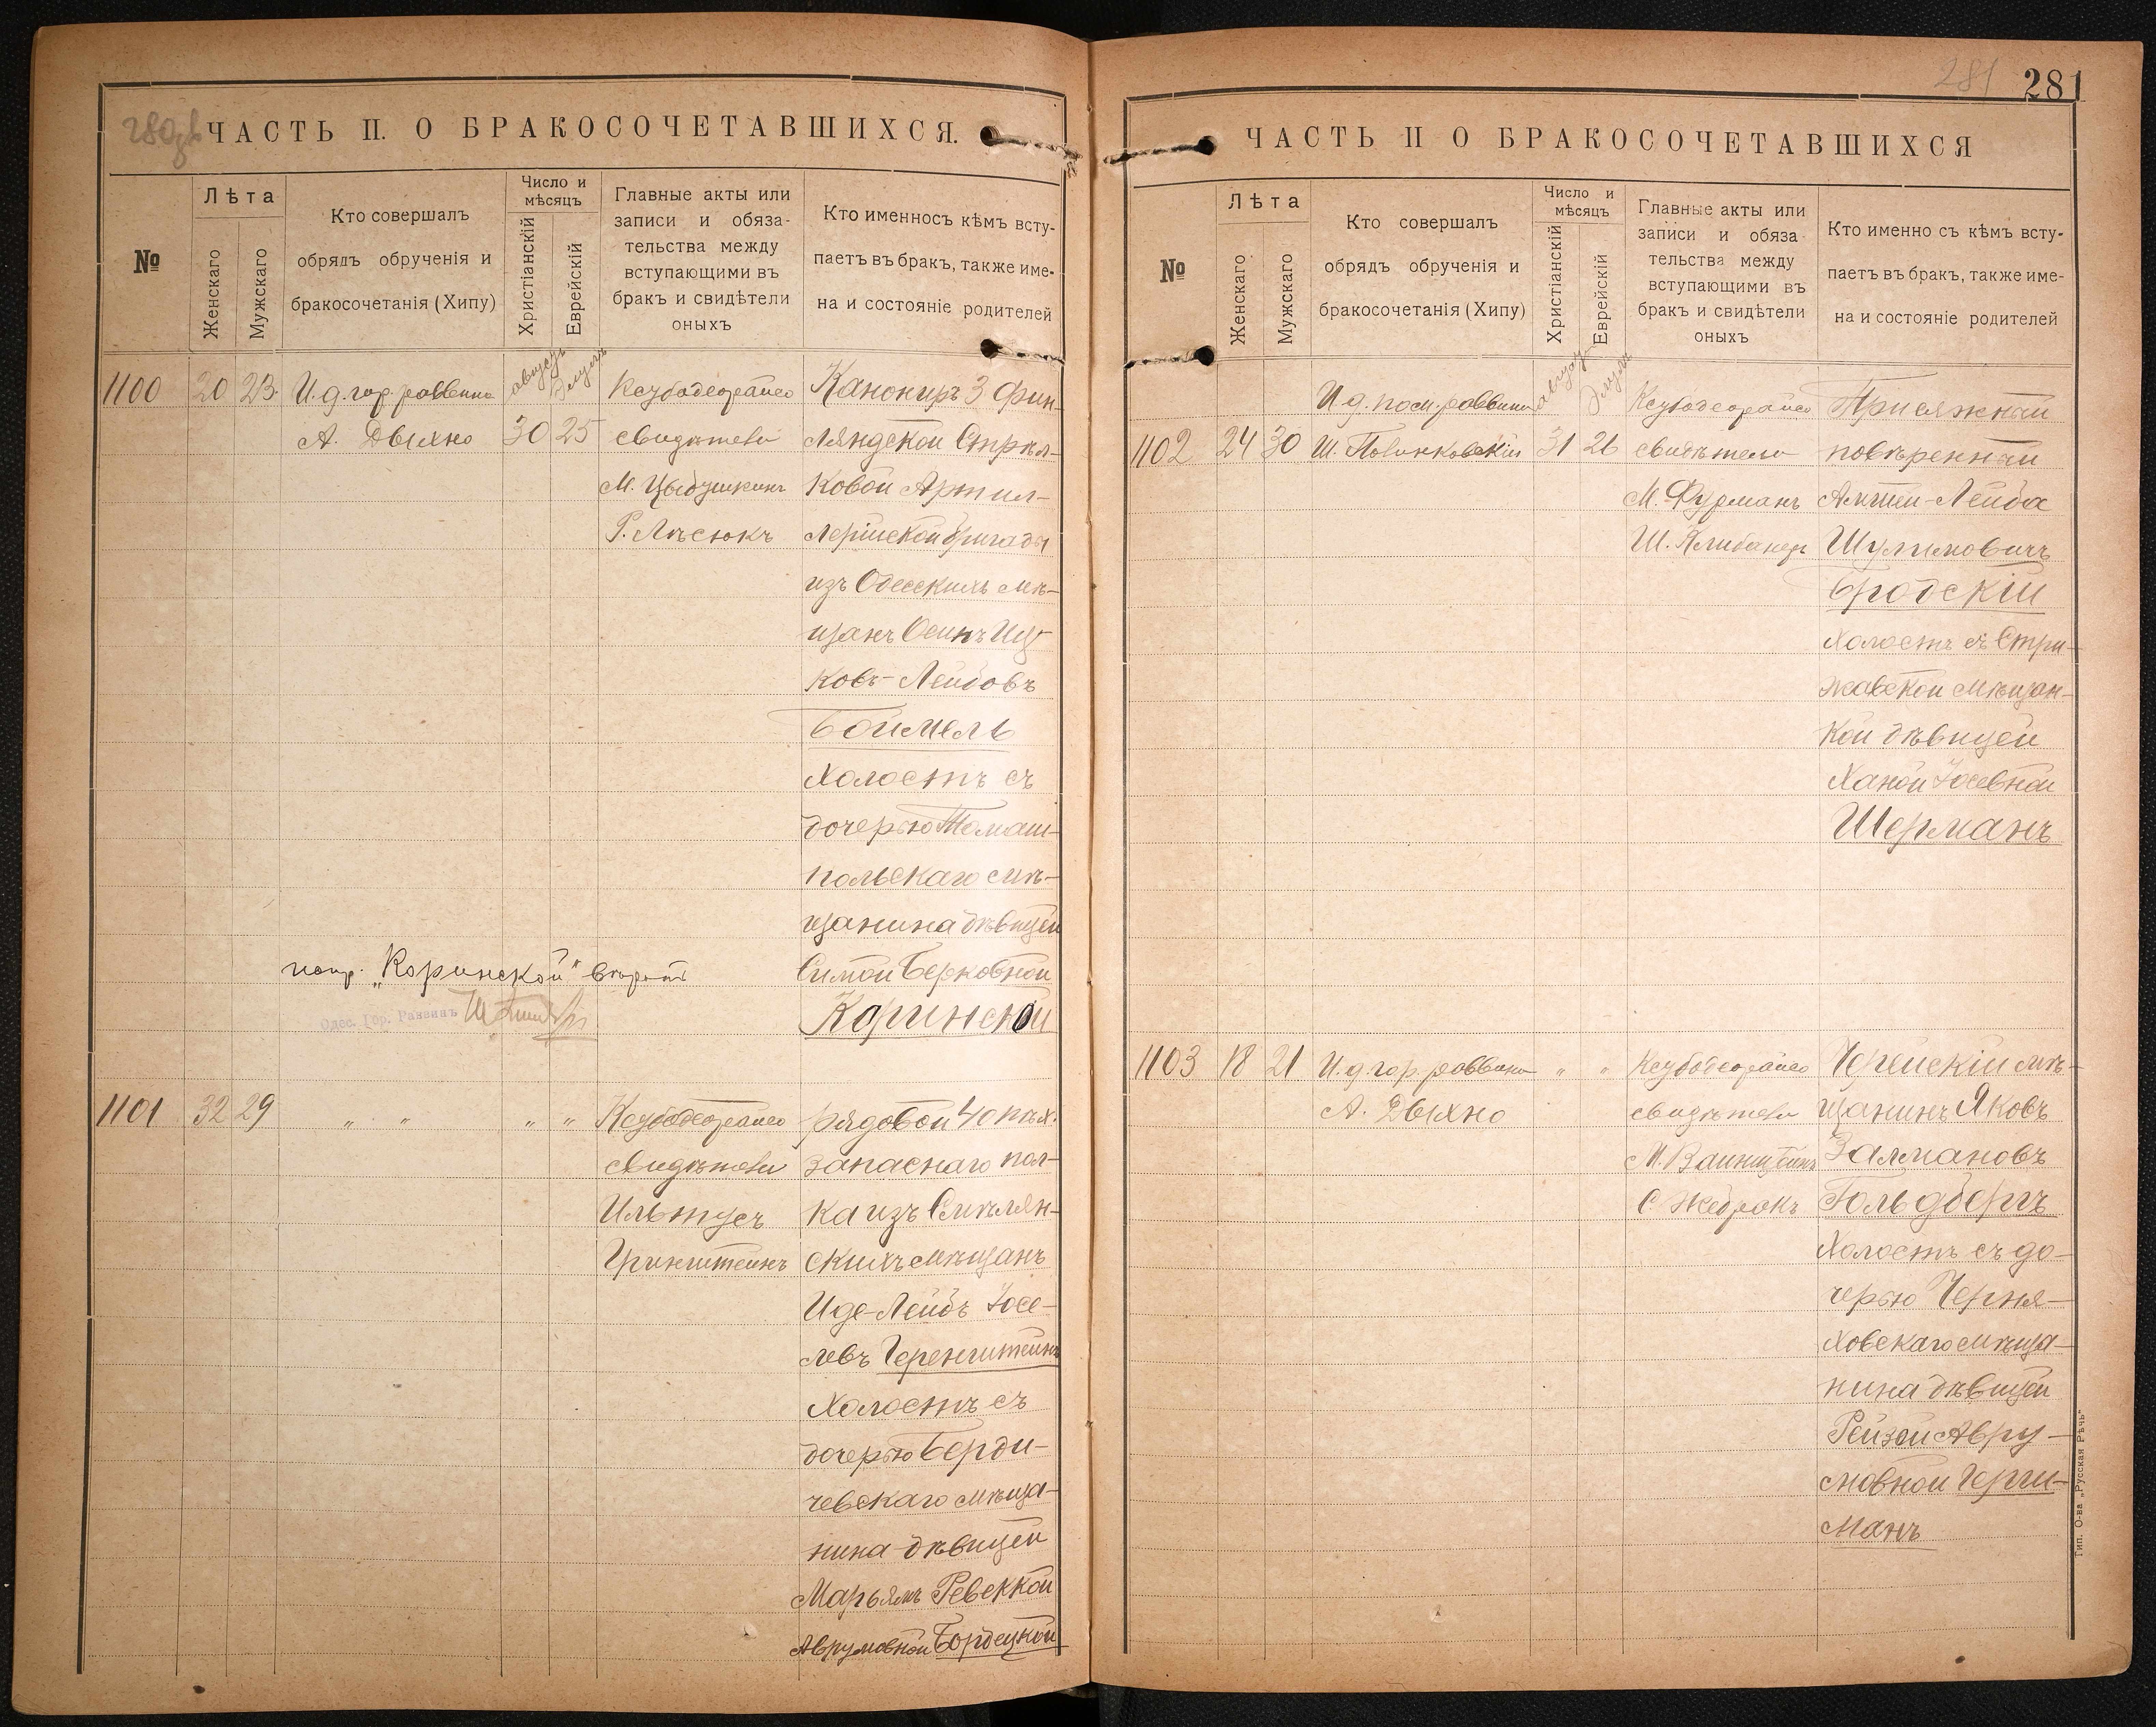 280об
ЧАСТЬ II. О БРАКОСОЧЕТАВШИХСЯ.
№
Лѣта
Женскаго
Мужскаго
Кто совершалъ
обрядъ обрученія и
бракосочетанія (Хипу)
Число и
мѣсяцъ
Христіанскій
Еврейскій
Главные акты или
записи и обяза-
тельства между
вступающими въ
бракъ и свидѣтели
оныхъ
Кто именносъ кѣмъ всту-
паетъ въ бракъ, также име-
на и состояніе родителей
1100 20 23 И. д. гор. раввина
А. Дыхно
августъ Элулъ
30 25
Ксубодеорайсо
свидѣтели
М. Цыбушкинъ
Р. Лѣсюкъ
Канониръ 3 Фин-
ляндской Стрѣл-
ковой Артил-
лерійской бригады
изъ Одесскихъ мѣ-
щанъ Осипъ Иц-
ковъ-Лейбовъ
Боймель
холостъ съ
дочерью Томаш-
польскаго мѣ-
щанина дѣвицей
Симой Берковной
Коринской
испр. „Коринской" вѣрно
Одес. Гор. Раввинъ
1101 32 29 „ „ „ „
Ксубодеорайсо
свидѣтели
Ильтусъ
Гринштейнъ
рядовой 40 пѣх.
запаснаго пол-
ка изъ Смѣлян-
скихъ мѣщанъ
Иде-Лейбъ Iосе-
левъ Геренштейнъ
холостъ съ
дочерью Берди-
чевскаго мѣща-
нина дѣвицей
Марьямъ Ревеккой
Аврумовной Бордецкой
281 281
ЧАСТЬ II О БРАКОСОЧЕТАВШИХСЯ
№
Лѣта
Женскаго
Мужскаго
Кто совершалъ
обрядъ обрученія и
бракосочетанія (Хипу)
Число и
мѣсяцъ
Христіанскій
Еврейскій
Главные акты или
записи и обяза-
тельства между
вступающими въ
бракъ и свидѣтели
оныхъ
Кто именно съ кѣмъ всту-
паетъ въ бракъ, также име-
на и состояніе родителей
августъ Элулъ
И. д. пом. раввина
1102 24 30 Ш. Повинковскій 31 26
Ксубодеорайсо
свидѣтели
М. Фурманъ
Присяжный
повѣренный
Алтей-Лейба
Шулимовичъ
Бродскій
холостъ съ Стри-
жавской мѣщан-
кой дѣвицей
Ханой Iосевной
Шерманъ
1103 18 21 И. д. гор. раввина „ „
А. Дыхно
Ксубодеорайсо
свидѣтели
М. Вайнштейнъ
С. Жебракъ
Черейскій мѣ-
щанинъ Яковъ
Залмановъ
Гольдборгъ
холостъ съ до-
черью Черня-
ховскаго мѣща-
нина дѣвицей
Рейзой Авру-
мовной Герш-
манъ
Тип. О-ва „Русская Рѣчь"